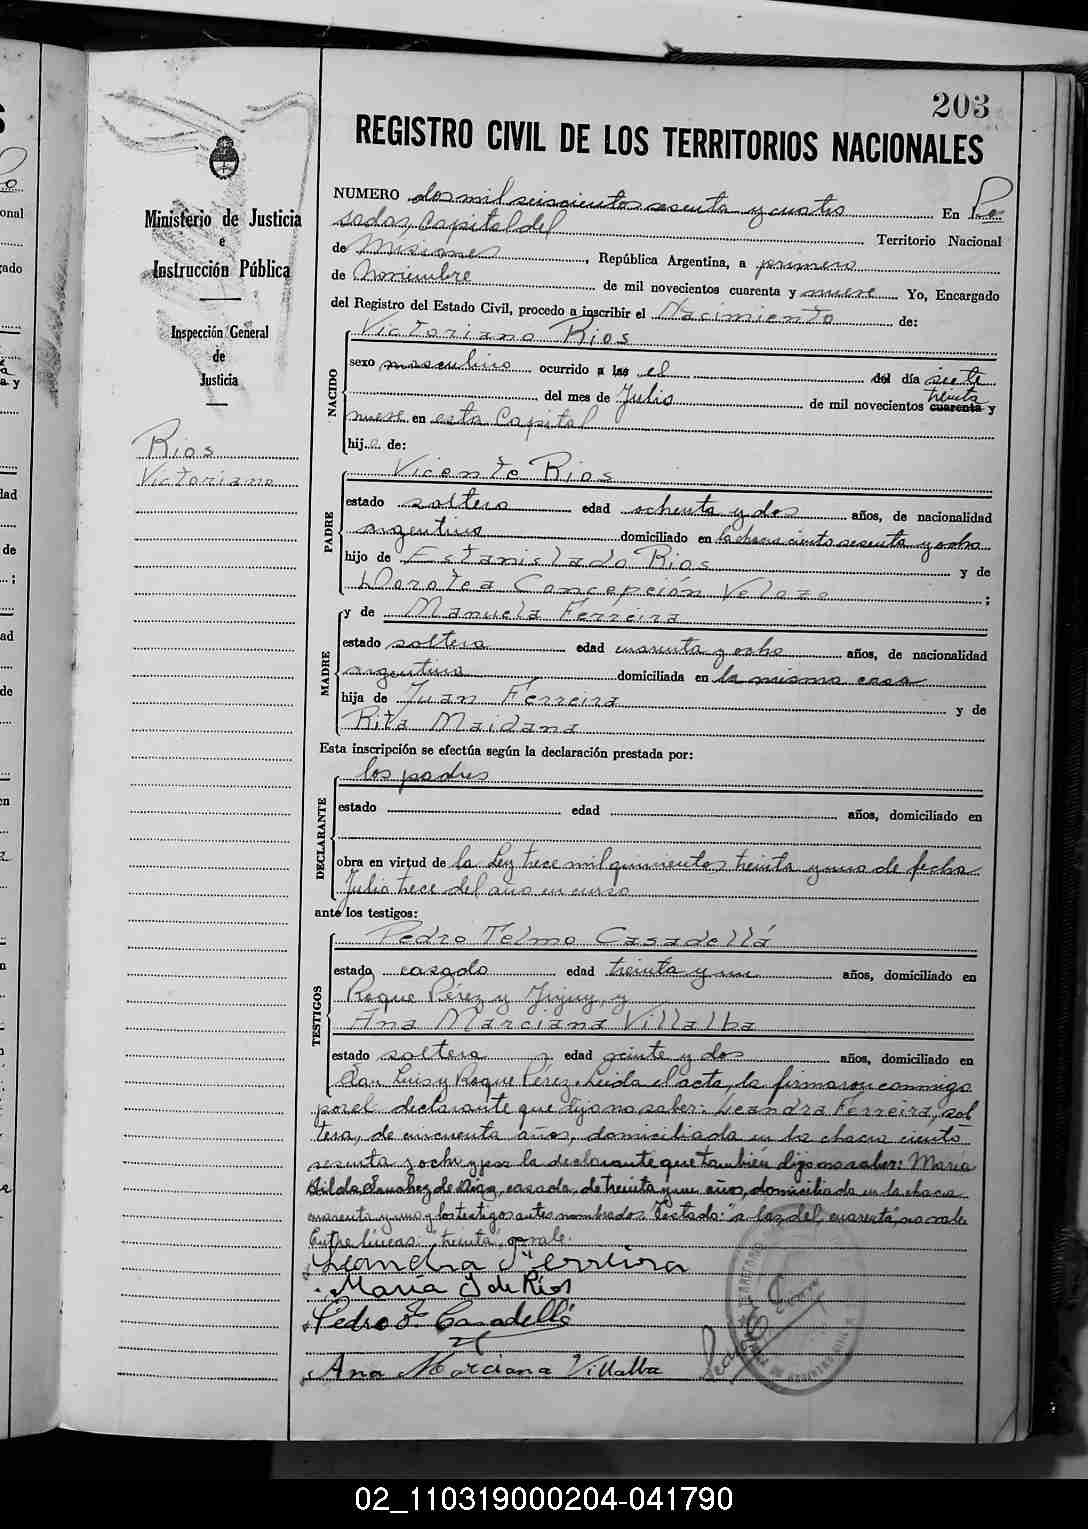 203
REGISTRO CIVIL DE LOS TERRITORIOS NACIONALES
Ministerio de Justicia
e
Instrucción Pública
Inspección General
de
Justicia
Rios
Victoriano
NUMERO dos mil seiscientos sesenta y cuatro En Po
sadas, Capital del Territorio Nacional
de Misiones, República Argentina, a primero
de Noviembre de mil novecientos cuarenta y nueve Yo, Encargado
del Registro del Estado Civil, procedo a inscribir el Nacimiento de:
NACIDO
Victoriano Rios
sexo masculino ocurrido a las el del día siete
treinta
del mes de Julio de mil novecientos cuarenta y
nueve en esta Capital
hijo de:
PADRE
Vicente Rios
estado soltero edad ochenta y dos años, de nacionalidad
argentino domiciliado en la chacra ciento sesenta y ocho
hijo de Estanislado Rios y de
Dorotea Concepción Velozo ;
MADRE
y de Manuela Ferreira
estado soltera edad cuarenta y ocho años, de nacionalidad
argentina domiciliada en la misma casa
hija de Juan Ferreira y de
Rita Maidana
Esta inscripción se efectúa según la declaración prestada por:
DECLARANTE
los padres
estado edad años, domiciliado en
obra en virtud de la Ley trece mil quinientos treinta y uno de fecha
Julio trece del año en curso
ante los testigos:
TESTIGOS
Pedro Telmo Casadellá
estado casado edad treinta y un años, domiciliado en
Roque Pérez y Jujuy, y
Ana Marciana Villalba
estado soltera edad veinte y dos años, domiciliado en
San Luis y Roque Pérez. Leida el acta, la firmaron conmigo
por el declarante que dijo no saber: Leandra Ferreira, sol
tera, de cincuenta años, domiciliada en la chacra ciento
sesenta y ocho y por la declarante que también dijo no saber: María
Hilda de Rios, casada, de treinta y un años, domiciliada en la chacra
cuarenta y uno y los testigos antes nombrados. Testado: "a las del, cuarenta", no vale.
Entre lineas: "treinta", vale.
Leandra Ferreira
María de Rios
Pedro T. Casadellá
Ana Marciana Villalba
02_110319000204-041790